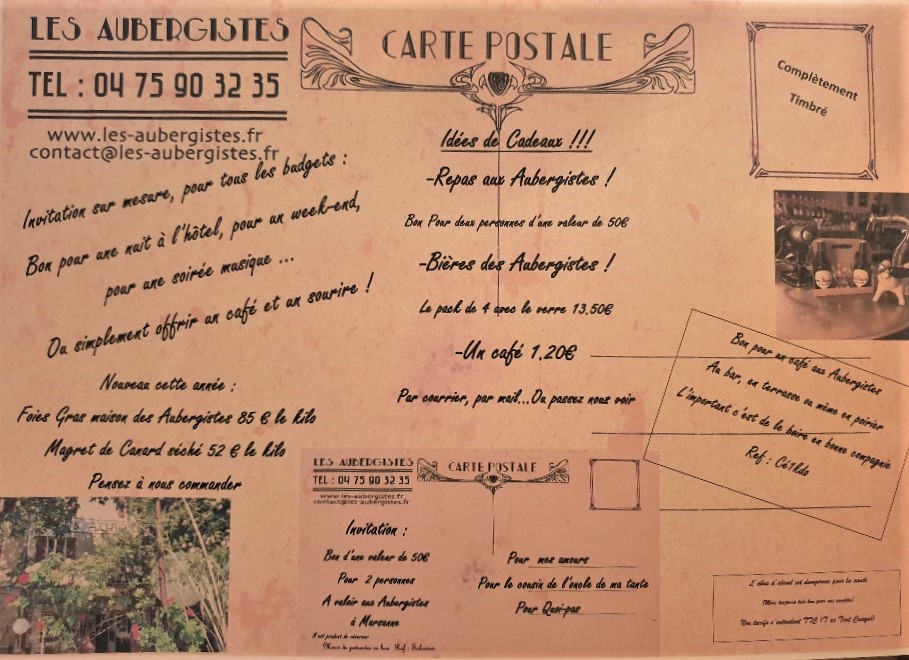 LES AUBERGISTES
TEL : 04 75 90 32 35
www.les-aubergistes.fr
contact@les-aubergistes.fr
Invitation sur mesure, pour tous les budgets :
Bon pour une nuit à l'hôtel, pour un week-end,
pour une soirée musique ...
Ou simplement offrir un café et un sourire !
Nouveau cette année :
Foies Gras maison des Aubergistes 85 € le kilo
Magret de Canard séché 52 € le kilo
Pensez à nous commander
CARTE POSTALE
Idées de Cadeaux !!!
-Repas aux Aubergistes !
Bon Pour deux personnes d'une valeur de 50€
-Bières des Aubergistes !
Le pack de 4 avec le verre 13,50€
-Un café 1,20€
Par courrier, par mail...Ou passez nous voir
Complètement
Timbré
Bon pour un café aux Aubergistes
Au bar, en terrasse ou même en poirier
L'important c'est de le boire en bonne compagnie
Ref : Cé1kdo
LES AUBERGISTES
TEL : 04 75 90 32 35
www.les-aubergistes.fr
contact@les-aubergistes.fr
CARTE POSTALE
Invitation :
Bon d'une valeur de 50€
Pour 2 personnes
A valoir aux Aubergistes
à Marsanne
Il est prudent de réserver
Merci de présenter ce bon Ref :
Pour mes amours
Pour le cousin de l'oncle de ma tante
Pour Quoi-pas
L'abus d'alcool est dangereux pour la santé
(Mais toujours très bon pour nos comptes)
Nos tarifs s'entendent TTC (T'es Tout Cassé)